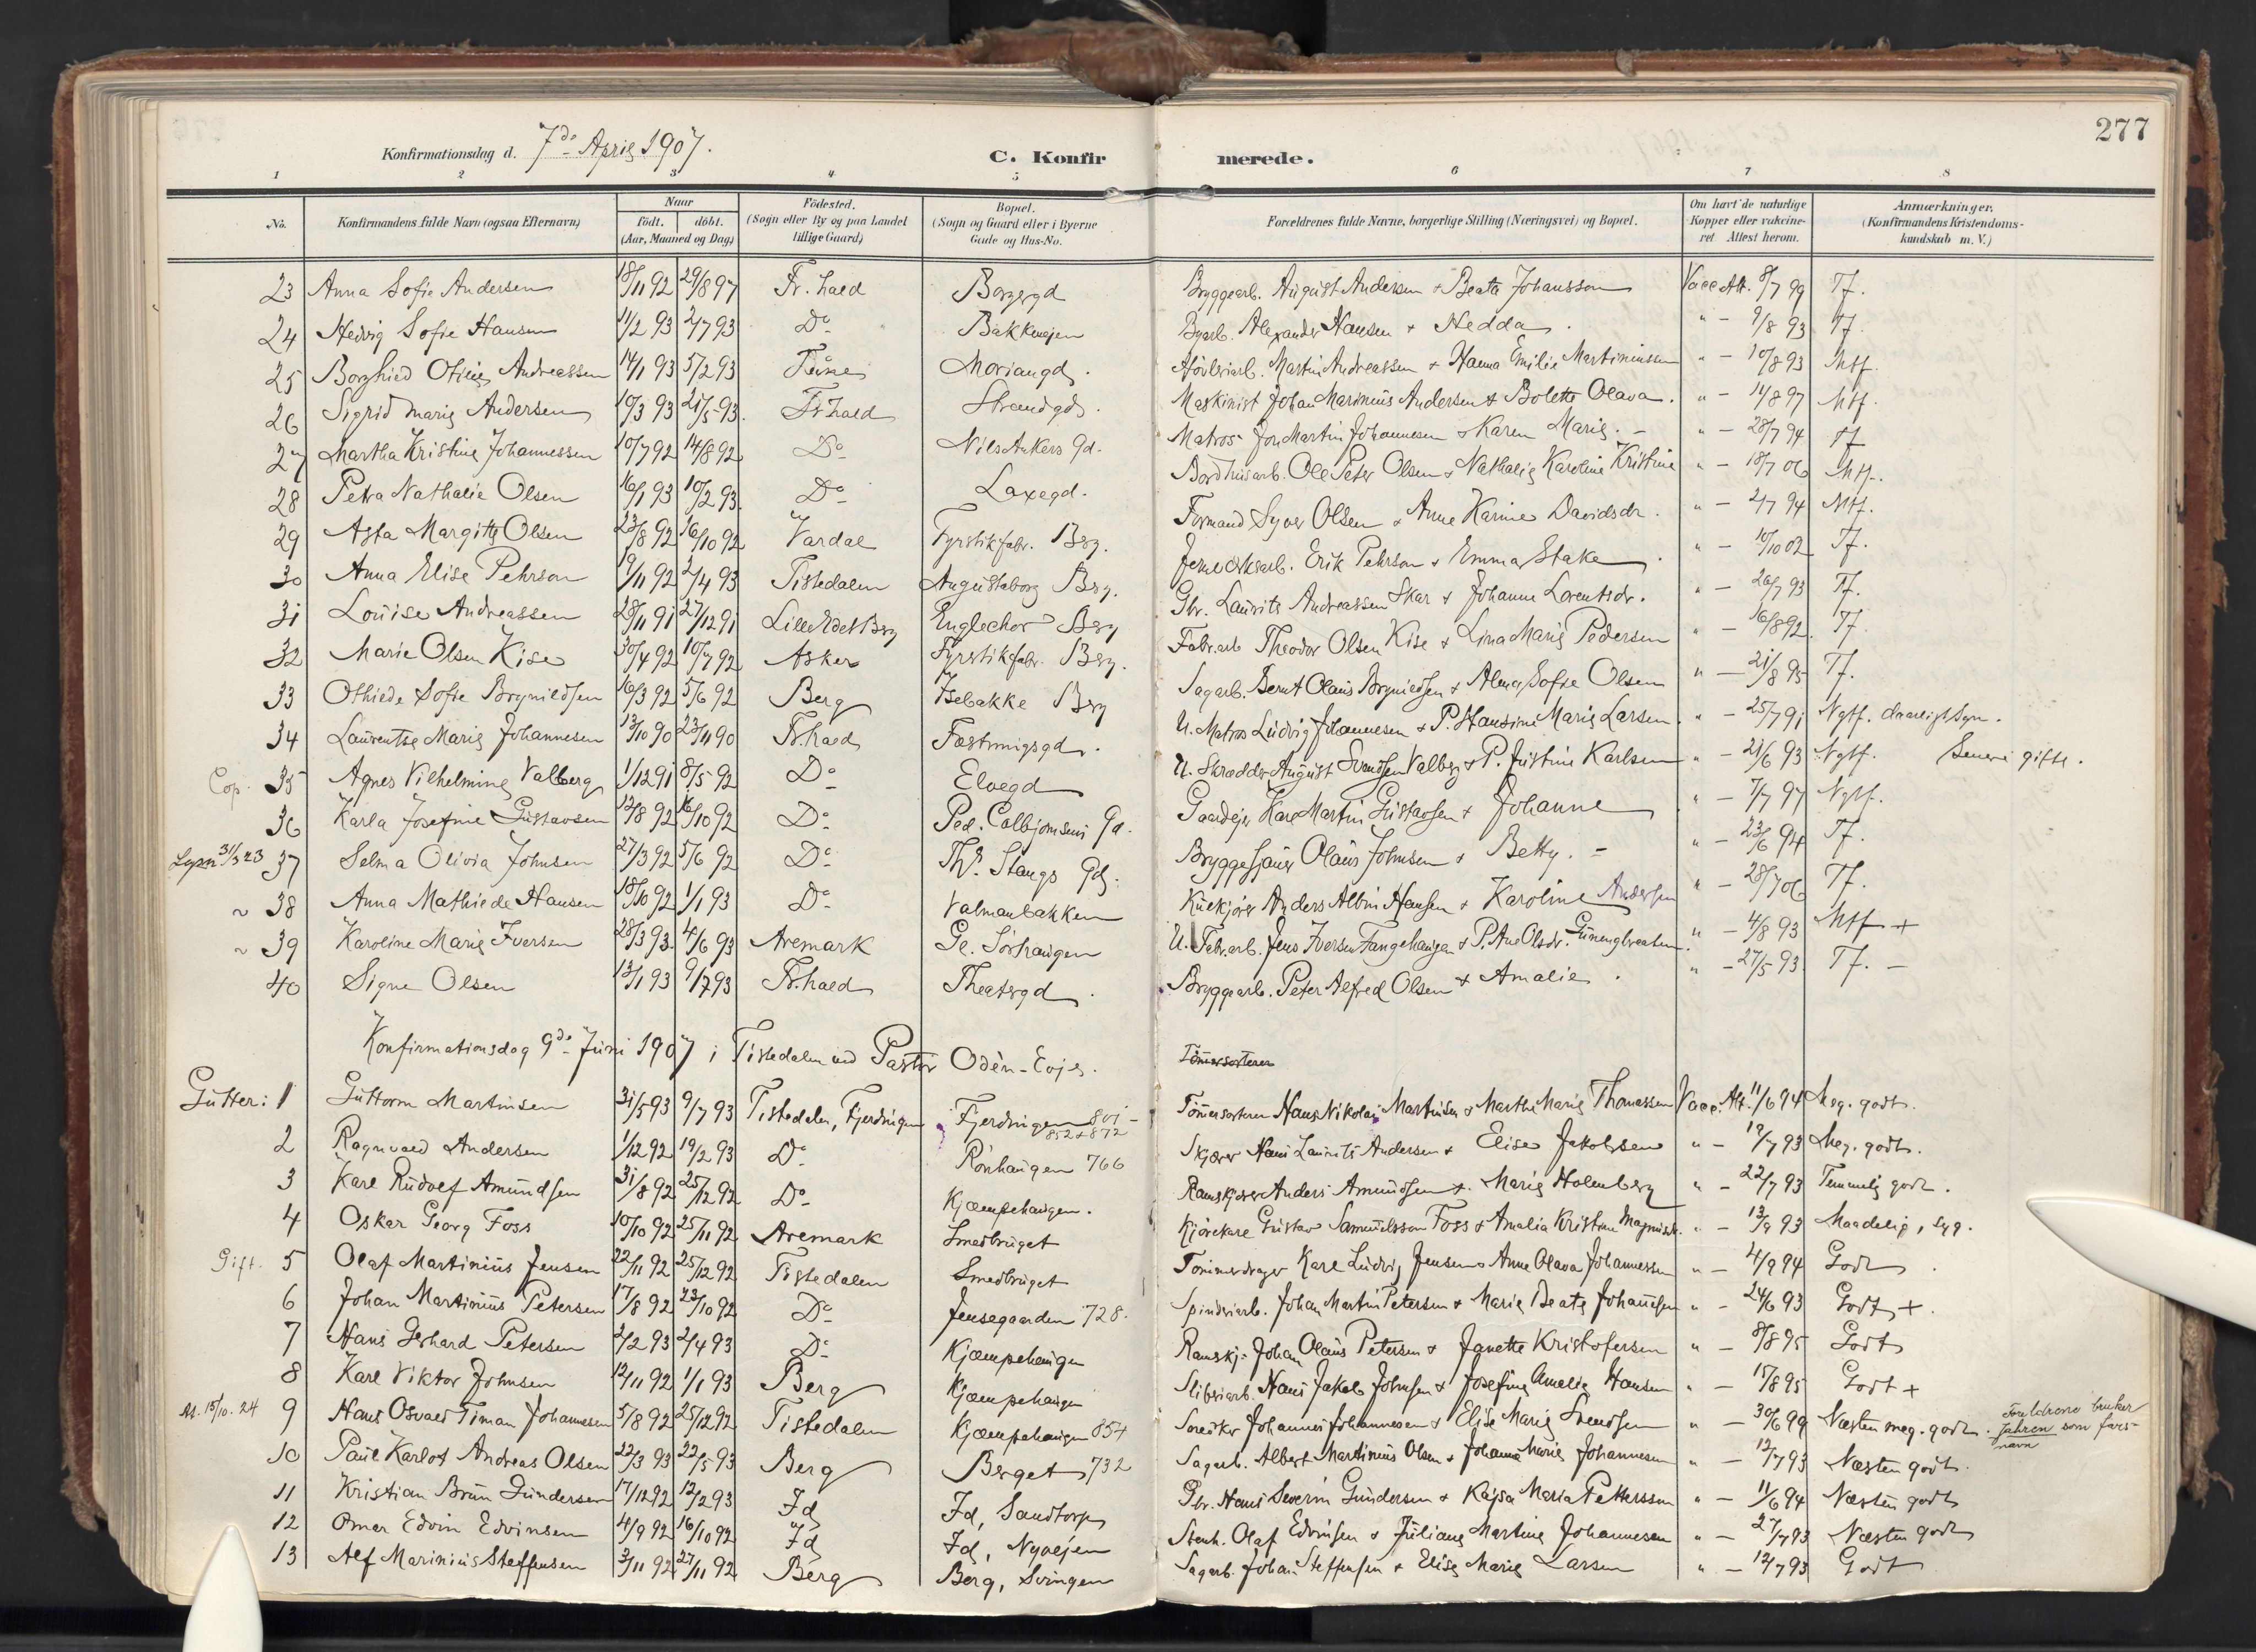 277
Konfirmationsdag d. 7de April 1907. C. Konfirmerede.
1 2 3 4 5 6 7 8
No. Konfirmandens fulde Navn (ogsaa Efternavn) Naar födt. döbt. (Aar, Maaned og Dag) Födested. (Sogn eller By og paa Landet tillige Gaard) Bopæl. (Sogn og Gaard eller i Byerne Gade og Hus-No. Forældrenes fulde Navne, borgerlige Stilling (Næringsvei) og Bopæl. Om havt de naturlige Kopper eller vaksineret Attest herom. Anmærkninger. (Konfirmandens Kristendomskundskab m. V.)
23 Anna Sofie Andersen 18/11 92 29/8 97 Fr.hald Borgergd Bryggearb. August Andersen & Beata Johansson Vacc Att. 8/7 99 Tf.
24 Hedvig Sofie Hansen 11/2 93 2/7 93 Do Bakkevejen Byarb. Alexander Hansen & Hedda. " - 9/8 93 Tf.
25 Borghild Otilie Andreassen 14/1 93 5/2 93 Tune Moriangd. Høvleriarb. Martin Andreassen & Hanna Emilie Martiniussen " - 10/8 93 Mtf.
26 Sigrid Marie Andersen 10/3 93 21/5 93. Fr.hald Strandgd. Maskinist Johan Marinius Andersen & Bolette Olava. " - 11/8 97 Mtf.
27 Martha Kristine Johannessen 10/7 92 14/8 92 Do Nils Ankers Gd. Matros Jon Martin Johannesen & Karen Marie. - " - 28/7 94 Tf
28 Petra Nathalie Olsen 16/1 93 10/2 93. Do Laxegd. Bordhusarb. Ole Peter Olsen & Nathalie Karoline Kristine " - 18/7 06 Mtf.
29 Asta Margitte Olsen 23/8 92 16/10 92 Vardal Fyrstikfabr. Berg. Formand Syver Olsen & Anne Karine Davidsdr. " - 2/7 94 Mtf.
30 Anna Elise Pehrson 19/11 92 2/4 93 Tistedalen Augustaborg Berg. Jernverksarb. Erik Pehrson & Emma Stake. " - 10/10 02 Tf.
31 Louise Andreassen 28/11 91 27/12 91 Lille Edet Berg Englechor Berg Gbr. Laurits Andreassen Skar & Johanne Lorentsdr. " - 26/7 93 Tf.
32 Marie Olsen Kise 30/4 92 10/7 92 Asker Fyrstikfabr. Berg. Fabr.arb Theodor Olsen Kise & Lina Marie Pedersen " - 16/8 92. Tf.
33 Othilde Sofie Brynildsen 16/3 92 5/6 92 Berg Isebakke Berg Sagarb. Bernt Olaus Brynildsen & Alma Sofie Olsen " - 21/8 95 Tf.
34 Laurentse Marie Johannesen 13/10 90 23/11 90 Fr.hald Fæstningsgd. U. Matros Ludvig Johannesen & P. Hansine Marie Larsen. " - 25/7 91 Ngtf. daarligt Syn.
Cop. 35 Agnes Vilhelmine Valberg 1/12 91 8/5 92 Do Elvegd U. Skrædder August Svendsen Valberg & P. Justine Karlsen " - 21/6 93 Ngtf. Senere gifte.
36 Karla Josefine Gustavsen 12/8 92 16/10 92 Do Ped. Colbjørnsens Gd. Gaardejer Karl Martin Gustavsen & Johanne " - 7/7 97 Ngtf.
Lysn 31/3 23 37 Selma Olivia Johnsen 27/3 92 5/6 92 Do Ths. Stangs Gd. Bryggesjauer Olaus Johnsen & Betty. - " - 23/6 94 Tf.
~ 38 Anna Mathilde Hansen 18/10 92 1/1 93 Do Valmanbakken Kulkjører Anders Albin Hansen & Karoline Andersen " - 28/7 06 Tf.
~ 39 Karoline Marie Iversen 28/3 93. 4/6 93 Aremark Gl. Sørhaugen U. Fabr.arb. Jens Iversen Fangehaugen & P. Ane Olsdr. " - 4/8 93 Mtf +
40 Signe Olsen 13/1 93 9/7 93 Fr.hald Theatergd. Bryggearb. Peter Alfred Olsen & Amalie. " - 27/5 93. Tf. -
Konfirmationsdag 9de Juni 1907 i Tistedalen ved Pastor Odèn-Eojes. Tømmersorterer
Gutter: 1 Guttorm Martinsen 31/5 93 9/7 93 Tistedalen, Fjerdingen Fjerdingen 801 - 852 & 872 Tømmersorterer Hans Nikolai Martinsen & Marthe Marie Thomassen Vacc. Att. 11/6 94 Meg. godt.
2 Ragnvald Andersen 1/12 92 19/2 93 Do Rønhaugen 766 Skjærer Hans Laurits Andersen & Elise Jakobsen " - 19/7 93 Meg. godt.
3 Karl Rudolf Amundsen 31/8 92 25/12 92 Do Kjæmpehaugen. Ramskjører Anders Amundsen & Marie Holmberg " - 22/7 93 Temmelig godt.
4 Oskar Georg Foss 10/10 92 25/11 92 Aremark Smedbruget Kjørekare Gustav Samuelsson Foss & Amalia Kristina Magnusdr. " - 13/9 93 Maadelig, syg.
Gift. 5 Olaf Martinius Jensen 22/11 92 25/12 92 Tistedalen Smedbruget Tømmerdrager Karl Ludvig Jensen & Anne Olava Johannessen " - 4/9 94 Godt.
6 Johan Martinius Petersen 17/8 92 23/10 92 Do Jensegaarden 728. Spinderiarb. Johan Martin Petersen & Marie Beate Johansen " - 24/6 93 Godt, +.
7 Hans Gerhard Petersen 2/2 93 2/4 93 Do Kjæmpehaugen Ramskj. Johan Olaus Petersen & Janette Kristofersen " - 8/8 95 Godt
8 Karl Viktor Johnsen 12/11 92 1/1 93 Berg Kjæmpehaugen Sliberiarb. Hans Jakob Johnsen & Josefine Amalie Hansen " - 15/8 95 Godt +
At. 15/10. 24 9 Hans Osvald Timan Johannesen 5/8 92 25/12 92 Tistedalen Kjæmpehaugen 854 Snedker Johannes Johannesen & Elise Marie Svendsen " - 30/6 99 Næsten meg. godt. Foreldrene bruker Jahren som farsnavn
10 Paul Karlot Andreas Olsen 22/3 93 22/5 93 Berg Berget 732 Sagarb. Albert Martinius Olsen & Johanne Marie Johannesen " - 12/7 93 Næsten godt.
11 Kristian Brun Gundersen 17/12 92 12/2 93 Id Id, Sandtorp Gbr. Hans Severin Gundersen & Kajsa Maria Pettersson " - 11/6 94 Næsten godt
12 Omar Edvin Edvinsen 4/9 92 16/10 92 Id Id, Nyvejen Stenh. Olaf Edvinsen & Juliane Martine Johannesen " - 27/7 93 Næsten godt
13 Alf Marinius Steffensen 3/11 92 27/11 92 Berg Berg, Svingen Sagarb. Johan Steffensen & Elise Marie Larsen " - 12/7 93 Godt